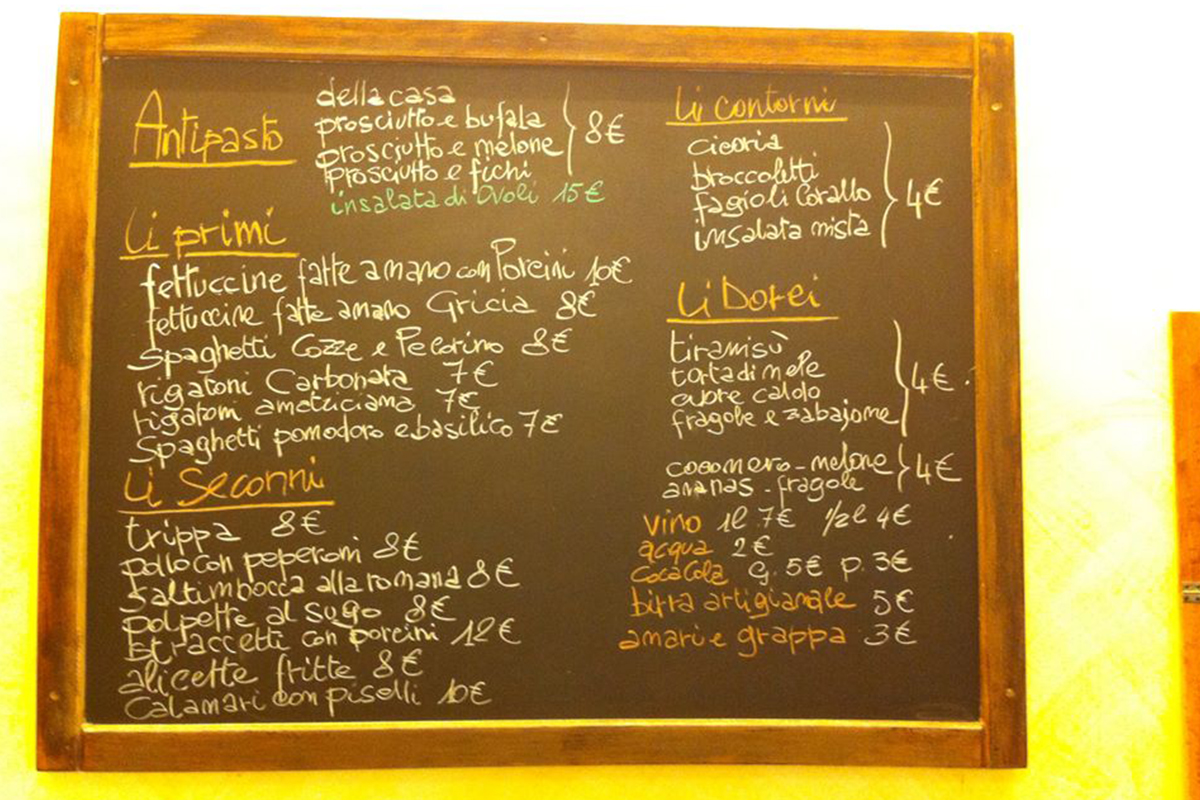 Antipasto
della casa
prosciutto e bufala
prosciutto e melone
prosciutto e fichi
8€
insalata di Ovoli 15€
Li primi
fettuccine fatte a mano con Porcini 10€
fettuccine fatte a mano Gricia 8€
Spaghetti Cozze e Pecorino 8€
rigatoni Carbonara 7€
rigatoni amatriciana 7€
Spaghetti pomodoro e basilico 7€
Li Seconni
trippa 8€
pollo con peperoni 8€
Saltimbocca alla romana 8€
polpette al sugo 8€
Straccetti con porcini 12€
alicette fritte 8€
Calamari con piselli 10€
Li contorni
cicoria
broccoletti
fagioli Corallo
insalata mista
4€
Li Dorci
tiramisù
torta di mele
cuore caldo
fragole e zabajone
4€
cocomero - melone
ananas - fragole
4€
vino 1l 7€ 1/2l 4€
acqua 2€
CocaCola G. 5€ p. 3€
birra artigianale 5€
amari e grappa 3€